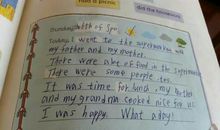 had a picnic
did the homework
Sunday, 8th of
Today, I went to the supermarket with
my father and my mother.
There were a lot of food in the supermarket.
There were some people too.
It was time for lunch, my father
and my grandma cooked rice for us.
I was happy. What a day!